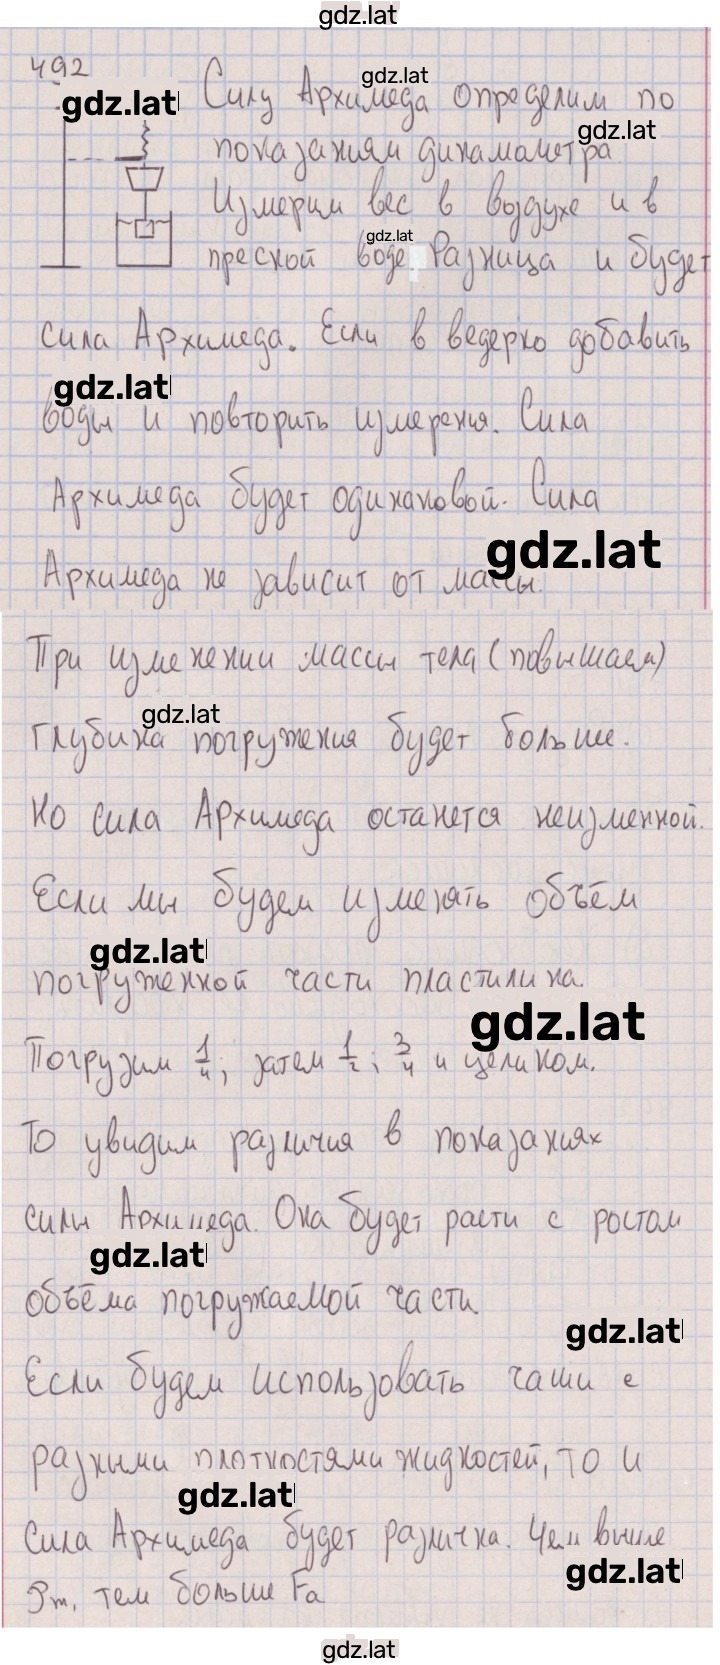 gdz.lat
492
gdz.lat
gdz.lat
Силу Архимеда определим по
gdz.lat
показаниям динамометра.
Измерим вес в воздухе и в
gdz.lat
пресной воде. Разница и будет
сила Архимеда. Если в ведерко добавить
gdz.lat
воды и повторить измерения. Сила
Архимеда будет одинаковой. Сила
gdz.lat
Архимеда не зависит от массы.
При изменении массы тела (повышаем)
gdz.lat
глубина погружения будет больше.
Но сила Архимеда останется неизменной.
Если мы будем изменять объём
gdz.lat
погруженной части пластилина.
gdz.lat
Погрузим 1/4; затем 1/2; 3/4 и целиком.
То увидим различия в показаниях
силы Архимеда. Она будет расти с ростом
gdz.lat
объёма погружаемой части.
gdz.lat
Если будем использовать чаши с
разными плотностями жидкостей, то и
gdz.lat
сила Архимеда будет различна. Чем выше
gdz.lat
ρт, тем больше Fа
gdz.lat